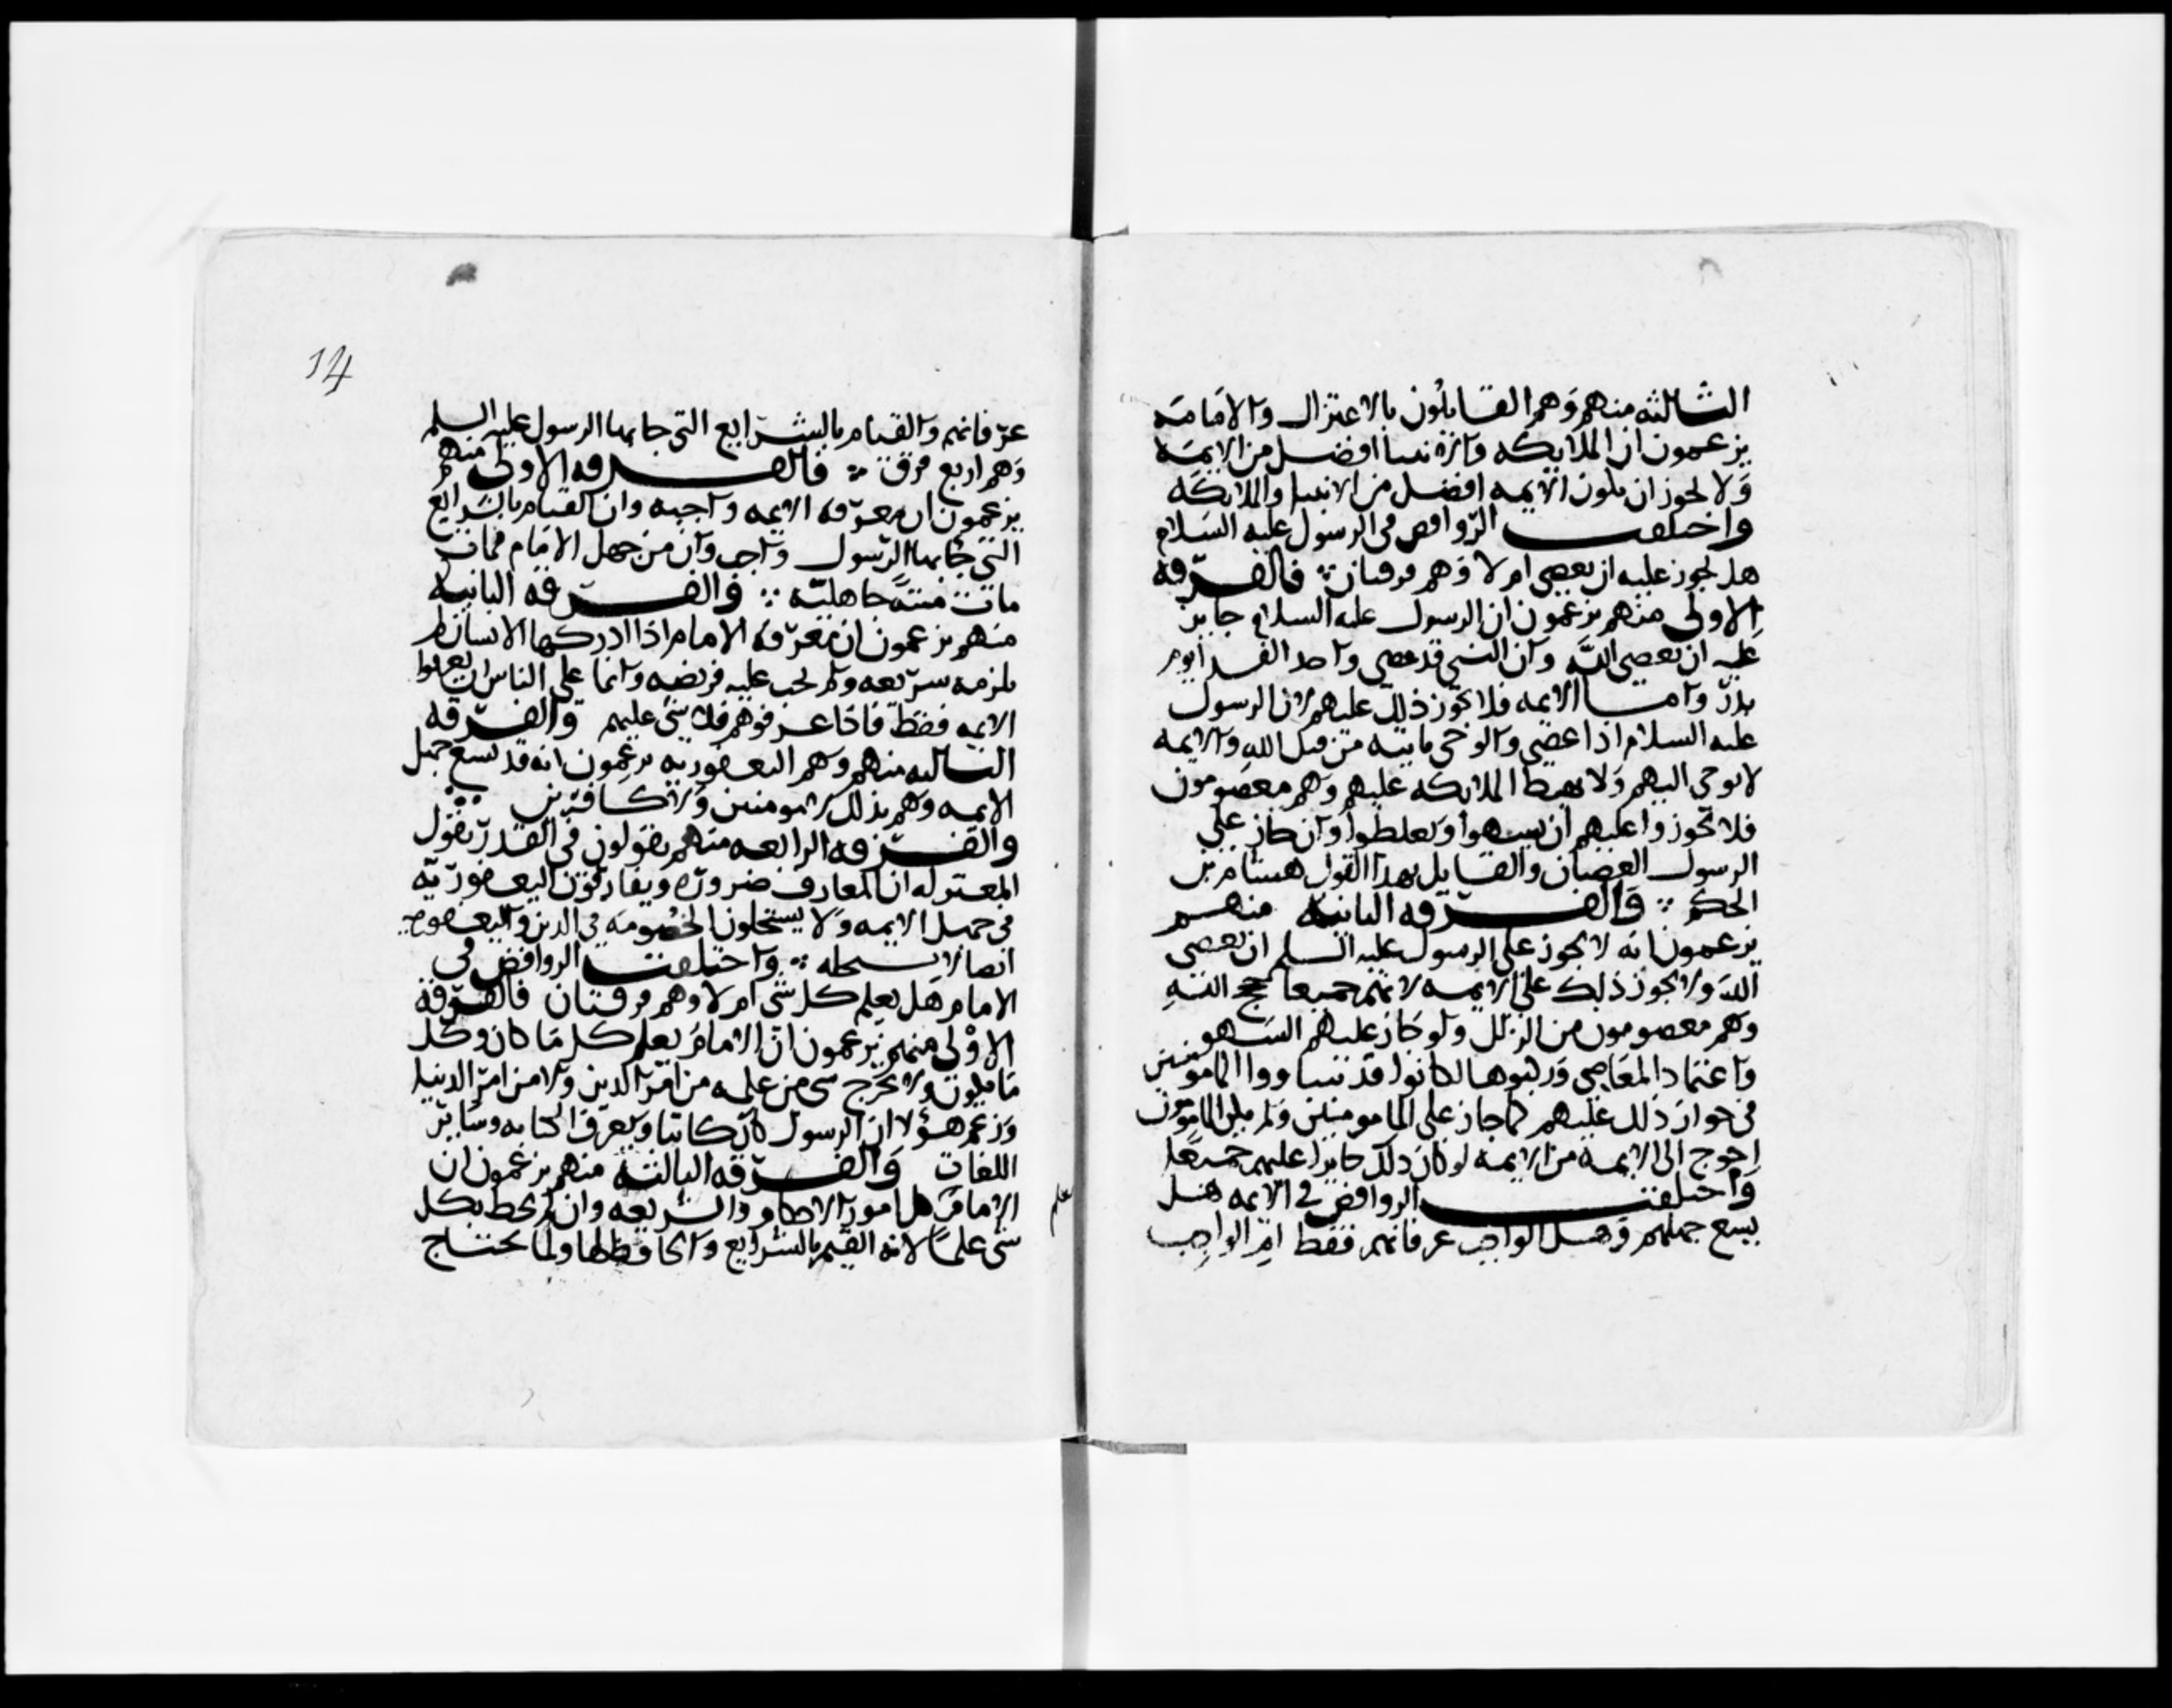 الثالثه منهم وهم القايلون بالاعتزال والامامه
يزعمون ان الملايكه والانبيا افضل من الايمه
ولا يجوز ان يكون الايمه افضل من الانبيا والملايكه
واختلفت الروافض في الرسول عليه السلام
هل يجوز عليه ان يعصي ام لا وهم فرقتان ∴ فالفرقه
الاولى منهم يزعمون ان الرسول عليه السلام جايز
عليه ان يعصي الله وان النبي قد عصى في اخذ الفدا يوم
بدر واما الايمه فلا يجوز ذلك عليهم لان الرسول
عليه السلام اذا عصى والوحي ياتيه من قبل الله والايمه
لا يوحى اليهم ولا يهبط الملايكه عليهم وهم معصومون
فلا يجوز عليهم ان يسهوا ويغلطوا وان جاز على
الرسول العصيان والقايل بهذا القول هشام بن
الحكم ∴ والفرقه الثانيه منهم
يزعمون انه لا يجوز على الرسول عليه السلم ان يعصي
الله ولا يجوز ذلك على الايمه لانهم جميعا حجج الله
وهم معصومون من الزلل ولو جاز عليهم السهو
واعتماد المعاصي وركبوها لكانوا قد ساووا المامومين
في جواز ذلك عليهم كما جاز على المامومين ولم يكن المامومون
احوج الى الايمه من الايمه لو كان ذلك جايزا عليهم جميعا
واختلفت الروافض في الايمه هل
يسع جهلهم وهل الواجب عرفانهم فقط ام الواجب
14
عرفانهم والقيام بالشرايع التي جا بها الرسول عليه السلم
وهم اربع فرق ∴ فالفرقه الاولى منهم
يزعمون ان معرفه الايمه واجبه وان القيام بالشرايع
التي جا بها الرسول واجب وان من جهل الامام فمات
مات ميتة جاهلية ∴ والفرقه الثانيه
منهم يزعمون ان معرفه الامام اذا ادركها الانسان لم
يلزمه شريعه ولم يجب عليه فريضه وانما على الناس ان يعرفوا
الايمه فقط فاذا عرفوهم فلا شي عليهم والفرقه
الثالثه منهم وهم اليعفوريه يزعمون انه قد يسع جهل
الايمه وهم بذلك لا مومنين ولا كافرين ∴
والفرقه الرابعه منهم يقولون في القدر بقول
المعتزله ان المعارف ضروره ويفارقون اليعفوريه
في جهل الايمه ولا يستحلون الخصومه في الدين واليعفوريه
ايضا لا يستحله ∴ واختلفت الروافض في
الامام هل يعلم كل شي ام لا وهم فرقتان فالفرقه
الاولى منهم يزعمون ان الامام يعلم كل ما كان وكل
ما يكون ولا يخرج شي من علمه من امر الدين ولا من امر الدنيا
وزعم هولا ان الرسول كان كاتبا ويعرف الكتابه وساير
اللغات والفرقه الثانيه منهم يزعمون ان
الامام كل امور الاحكام والشريعه وان لم يحط بكل
علم
شي علما لانه القيم بالشرايع والحافظ لها ولما يحتاج